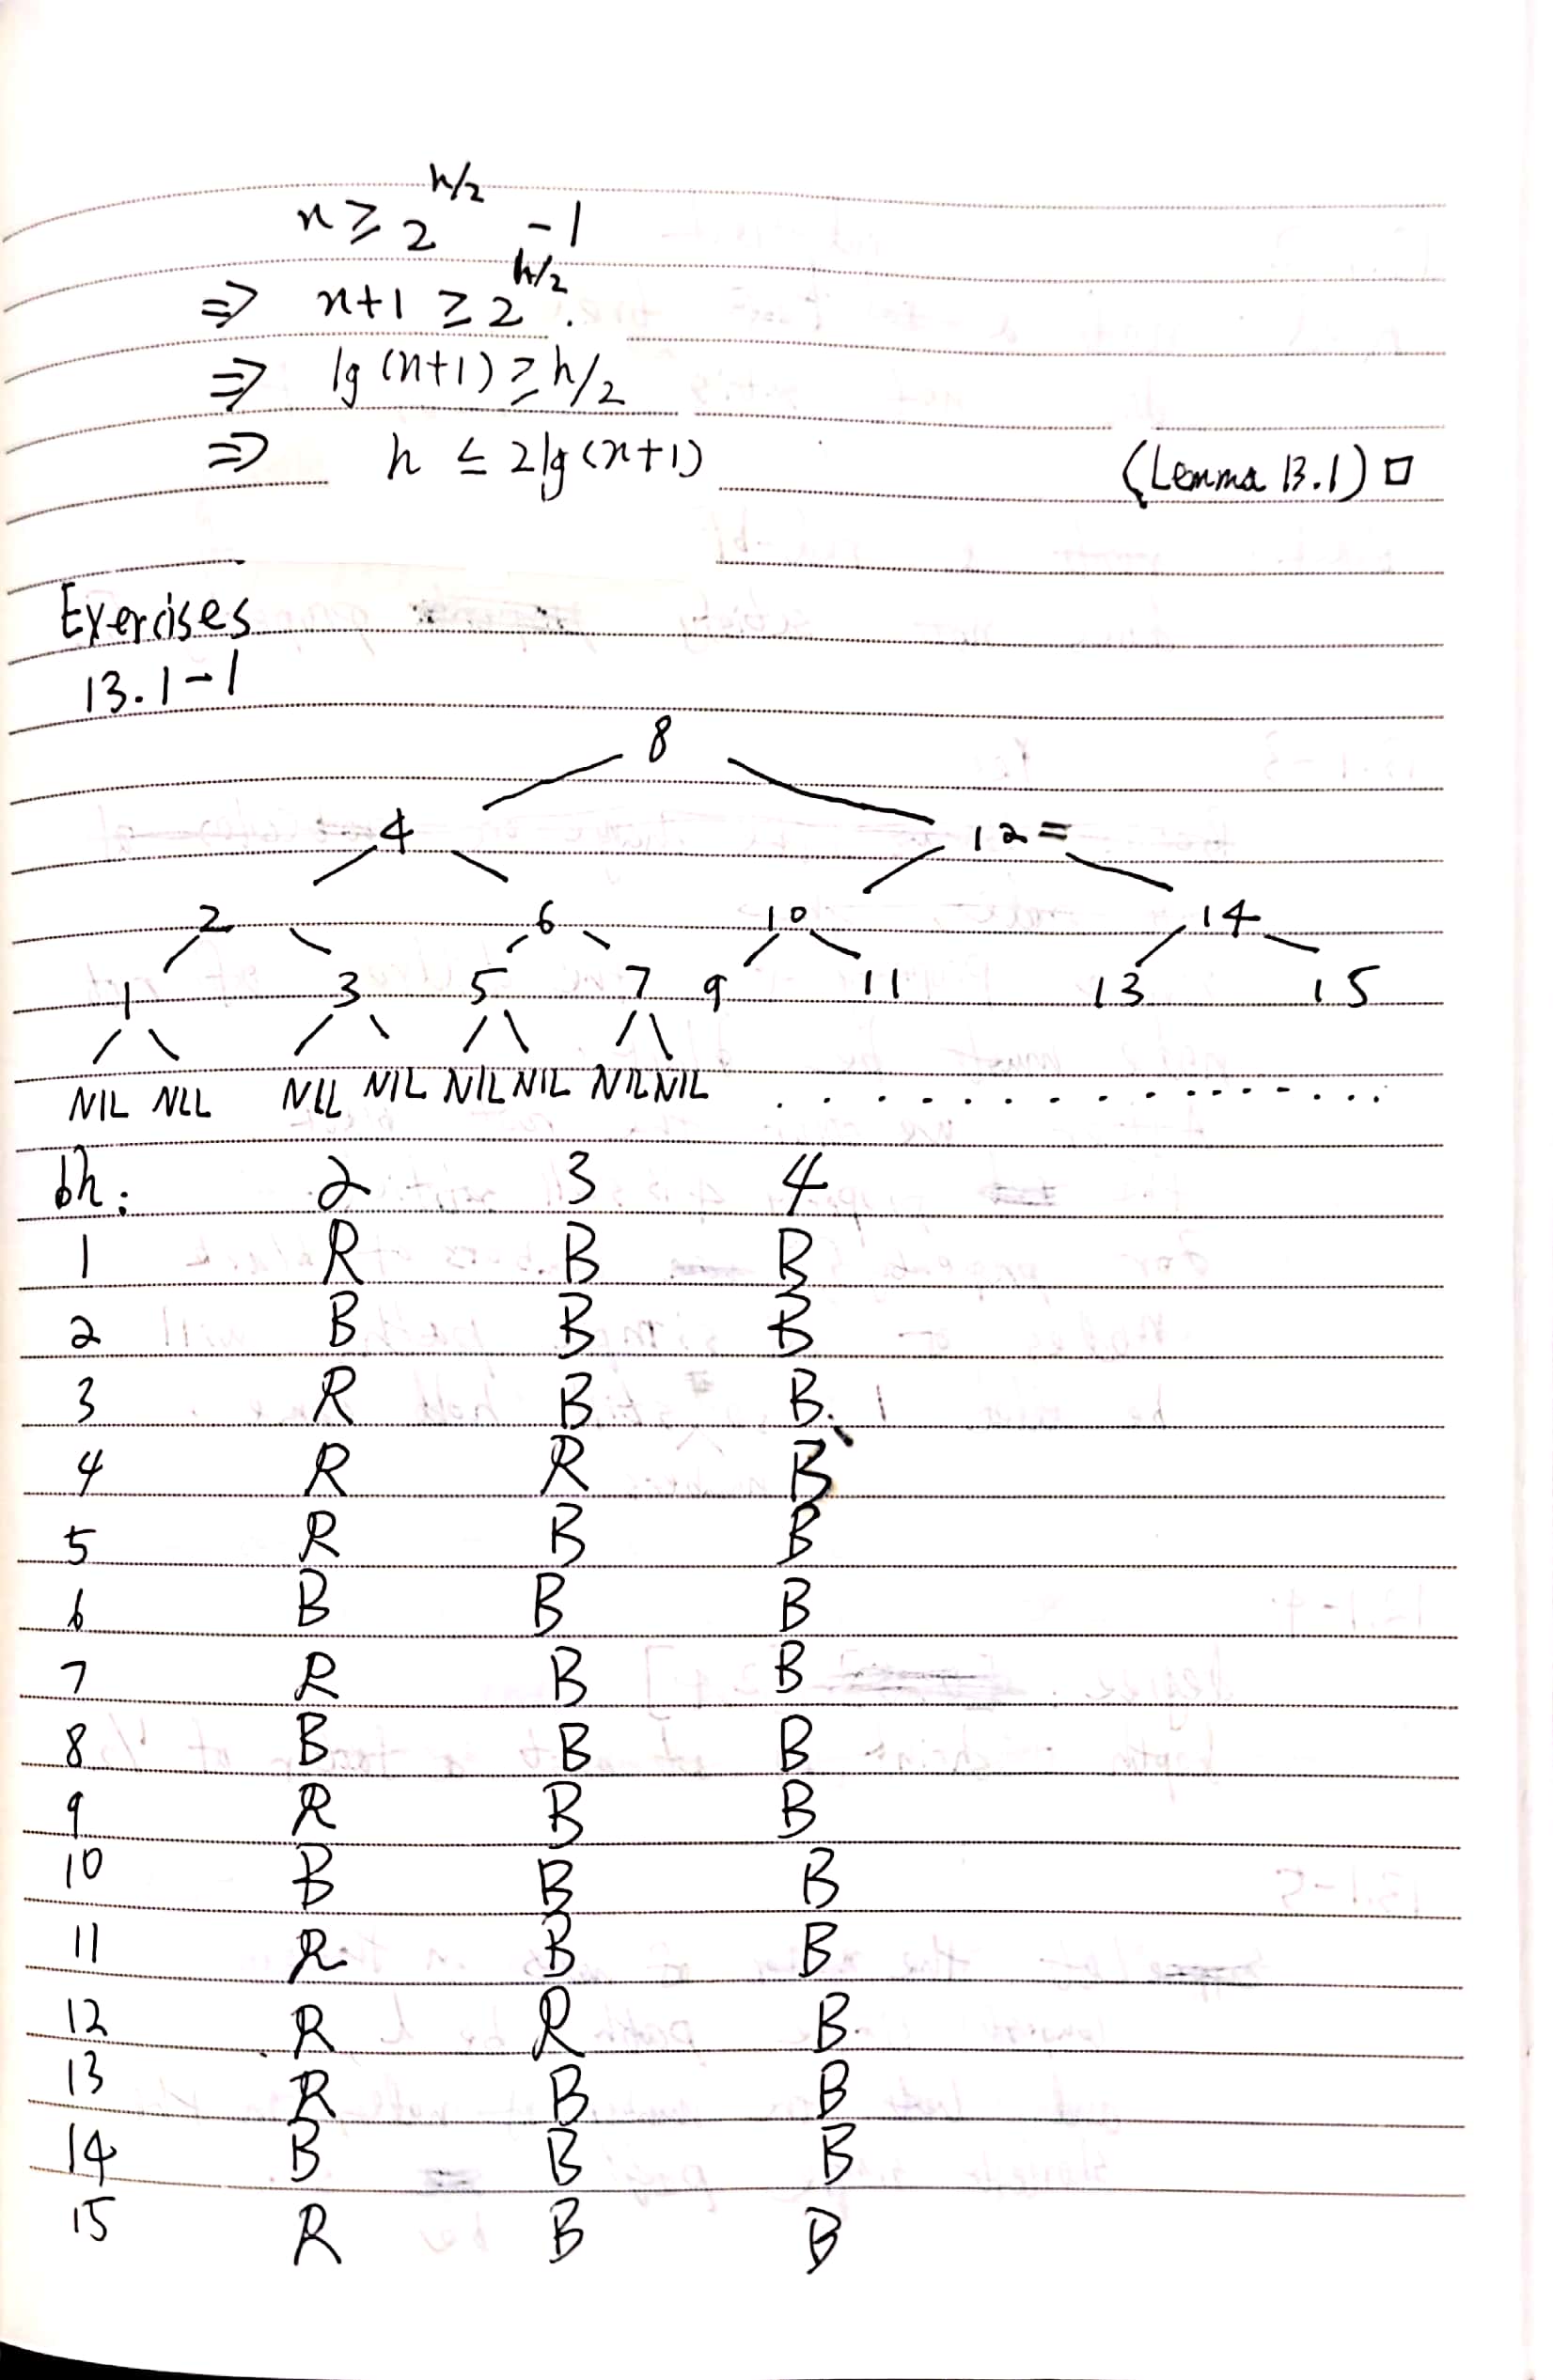 n ≥ 2^{h/2} - 1
⇒ n+1 ≥ 2^{h/2}.
⇒ lg (n+1) ≥ h/2
⇒ h ≤ 2lg(n+1) (Lemma 13.1) □
Exercises
13.1-1
8
4 12 =
2 6 10 14
1 3 5 7 9 11 13 15
NIL NIL NIL NIL NIL NIL NIL NIL . . . . . . . . . . . . . . . . . .
bh: 2 3 4
1 R B B
2 B B B
3 R B B.
4 R R B
5 R B B
6 B B B
7 R B B
8 B B B
9 R B B
10 B B B
11 R B B
12 R R B
13 R B B
14 B B B
15 R B B